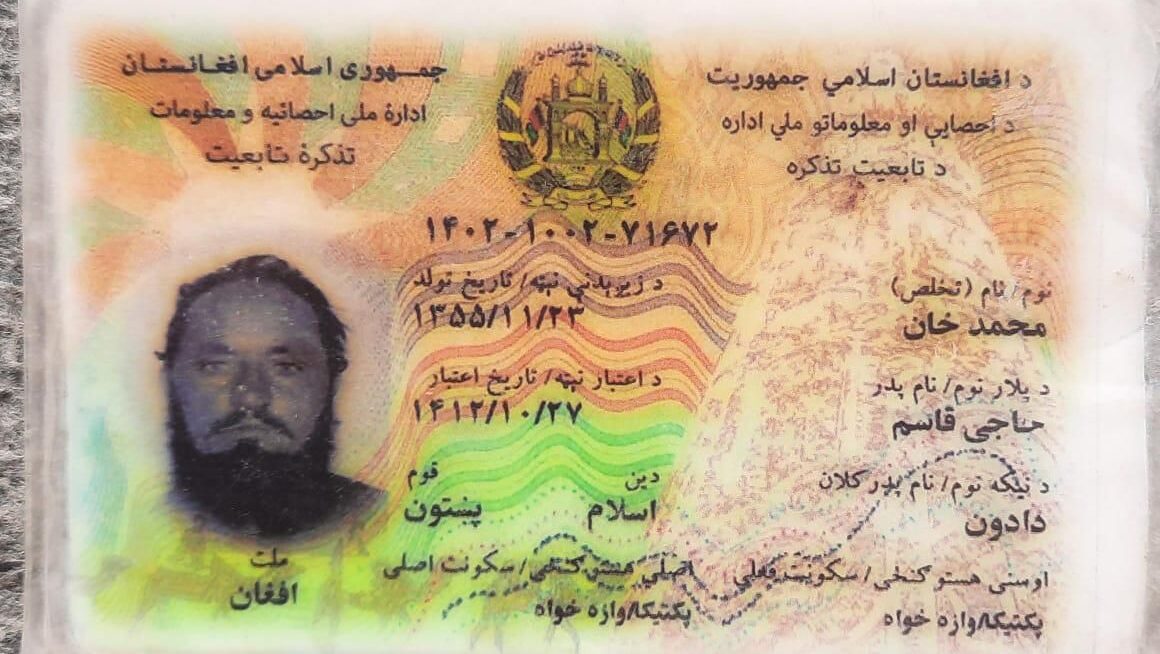 د افغانستان اسلامي جمهوریت
د احصایې او معلوماتو ملي اداره
د تابعیت تذکره
جمهوری اسلامی افغانستان
ادارهٔ ملی احصائیه و معلومات
تذکرهٔ تابعیت
۱۴۰۲-۱۰۰۲-۷۱۶۷۲
نوم/نام (تخلص)
محمد خان
د زېږېدنې نېټه/ تاریخ تولد
۱۳۵۵/۱۱/۲۳
د پلار نوم/ نام پدر
حاجی قاسم
د اعتبار نېټه/ تاریخ اعتبار
۱۴۱۲/۱۰/۲۷
د نیکه نوم/ نام پدر کلان
دادون
دین
اسلام
قوم
پښتون
اوسنی هستوګنځی/ سکونت فعلی
پکتیکا/وازه خواه
اصلي هستوګنځی/ سکونت اصلی
پکتیکا/وازه خواه
ملت
افغان